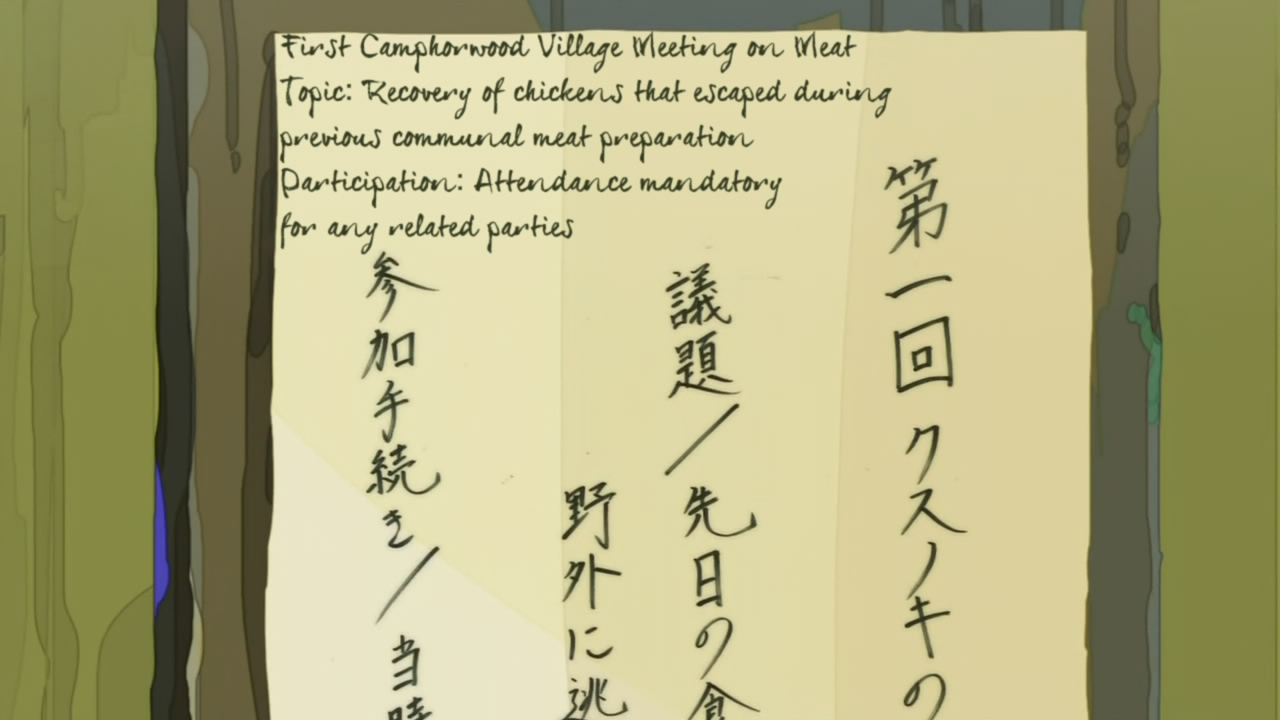 First Camphorwood Village Meeting on Meat
Topic: Recovery of chickens that escaped during
previous communal meat preparation
Participation: Attendance mandatory
for any related parties
第一回クスノキの
議題／先日の食
野外に逃
参加手続き／当時